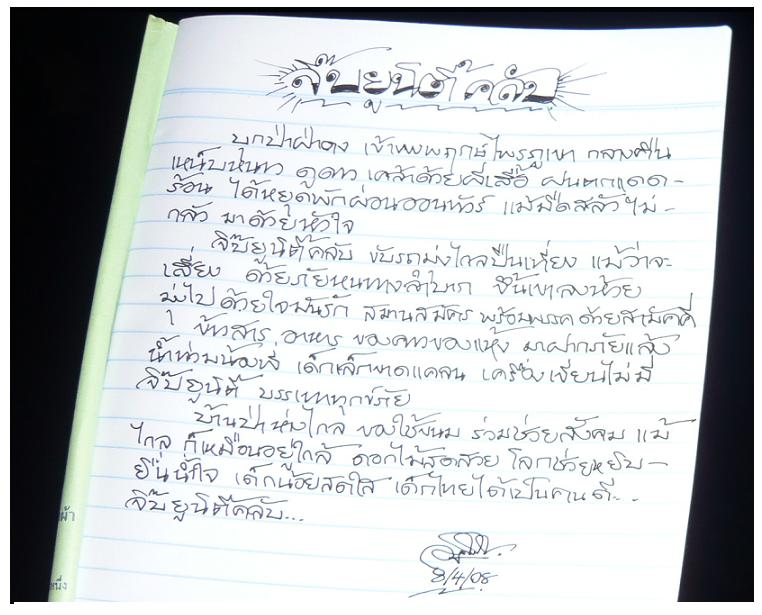 จิ๊บยูนิตี้คลับ
บุกป่าฝ่าดง เข้าพงพฤกษ์ไพรภูเขา กลางคืน
เหน็บหนาว ดูดาว เคล้าด้วยผีเสื้อ ฝนตกแดด-
ร้อน ได้หยุดพักผ่อนออนทัวร์ แม้มืดสลัวไม่-
กลัว มาด้วยหัวใจ
จิ๊บยูนิตี้คลับ ขับรถมุ่งไกลปืนเที่ยง แม้ว่าจะ
เสี่ยง ด้วยภัยหนทางลำบาก ขึ้นเขาลงห้วย
มุ่งไปด้วยใจมันรัก สมานสมัคร พร้อมพรรคด้วยสามัคคี
ข้าวสาร อาหาร ของคาวของแห้ง มาฝากภัยแล้ง
น้ำท่วมน้องพี่ เด็กเล็กขาดแคลน เครื่องเขียนไม่มี
จิ๊บยูนิตี้ บรรเทาทุกข์ภัย
บ้านป่าห่างไกล ของใช้ขนม ร่วมช่วยสังคม แม้
ไกล ก็เหมือนอยู่ใกล้ ดอกไม้สดสวย โลกช่วยหยิบ-
ยื่นน้ำใจ เด็กน้อยสดใส เด็กไทยได้เป็นคนดี..
จิ๊บยูนิตี้คลับ...
8/4/08
ผ้า
หนึ่ง